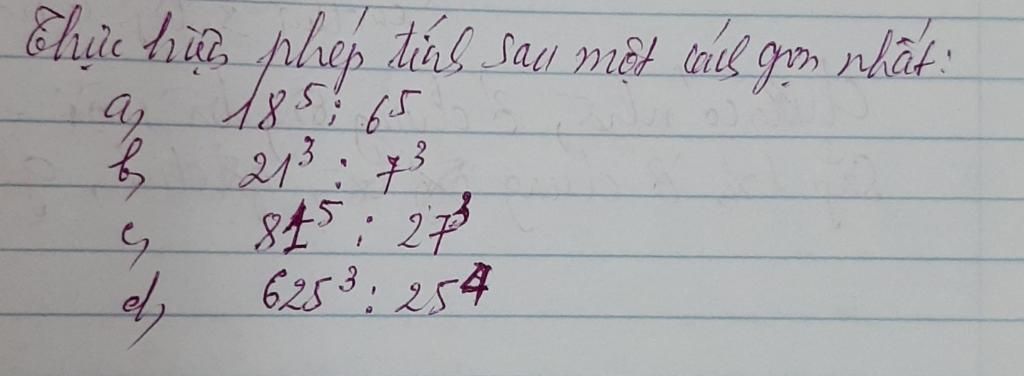 Thực hiện phép tính sau một cách gọn nhất:
a, 18⁵ : 6⁵
b, 21³ : 7³
c, 81⁵ : 27³
d, 625³ : 25⁴